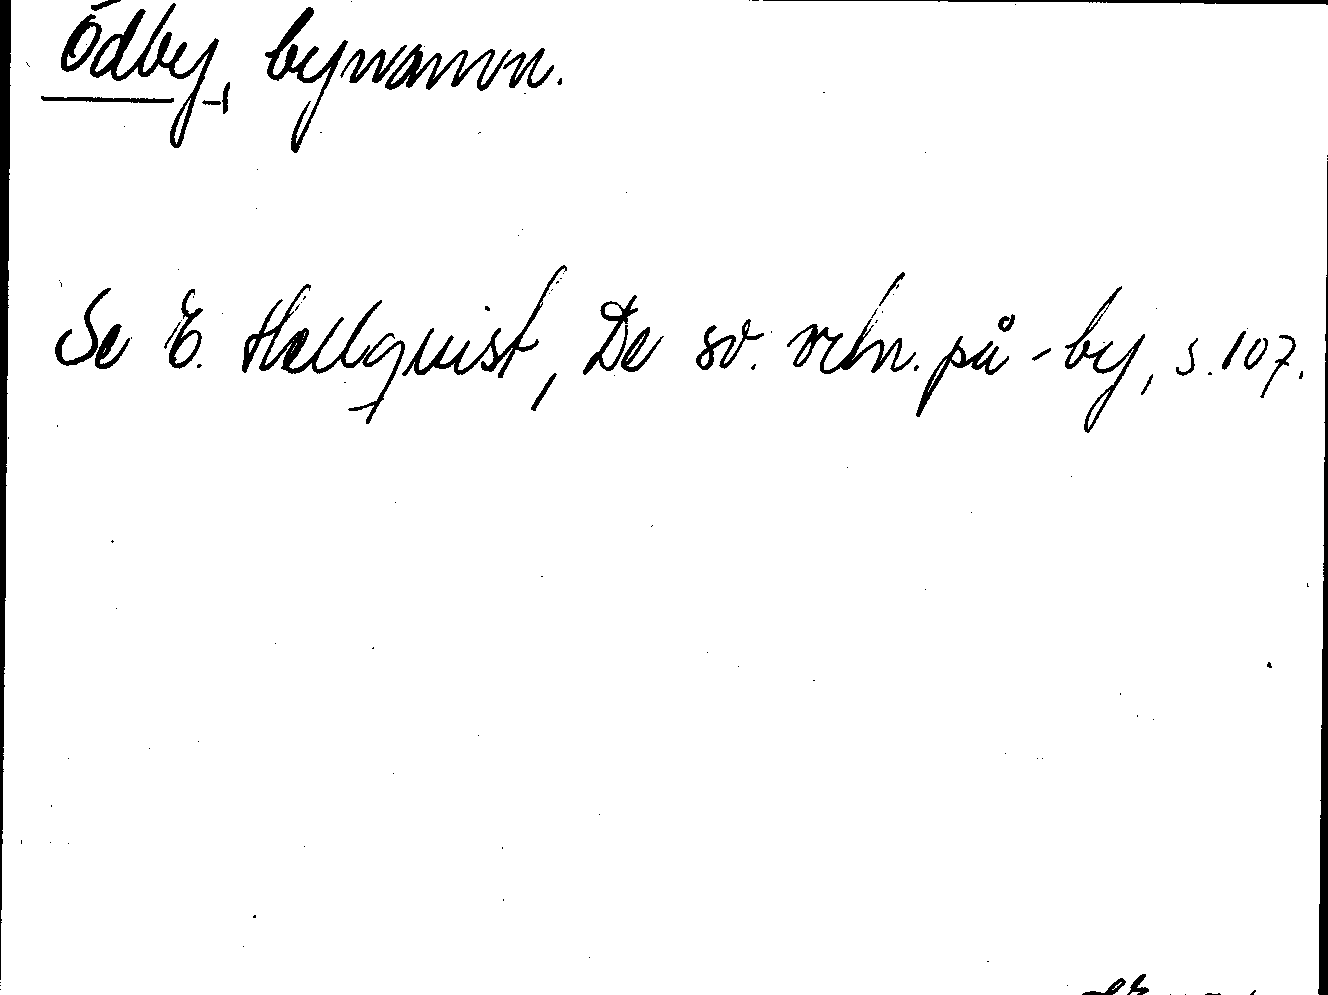 Ödby, bynamn.
Se E. Hellquist, De sv. ortn. på -by, s. 107.